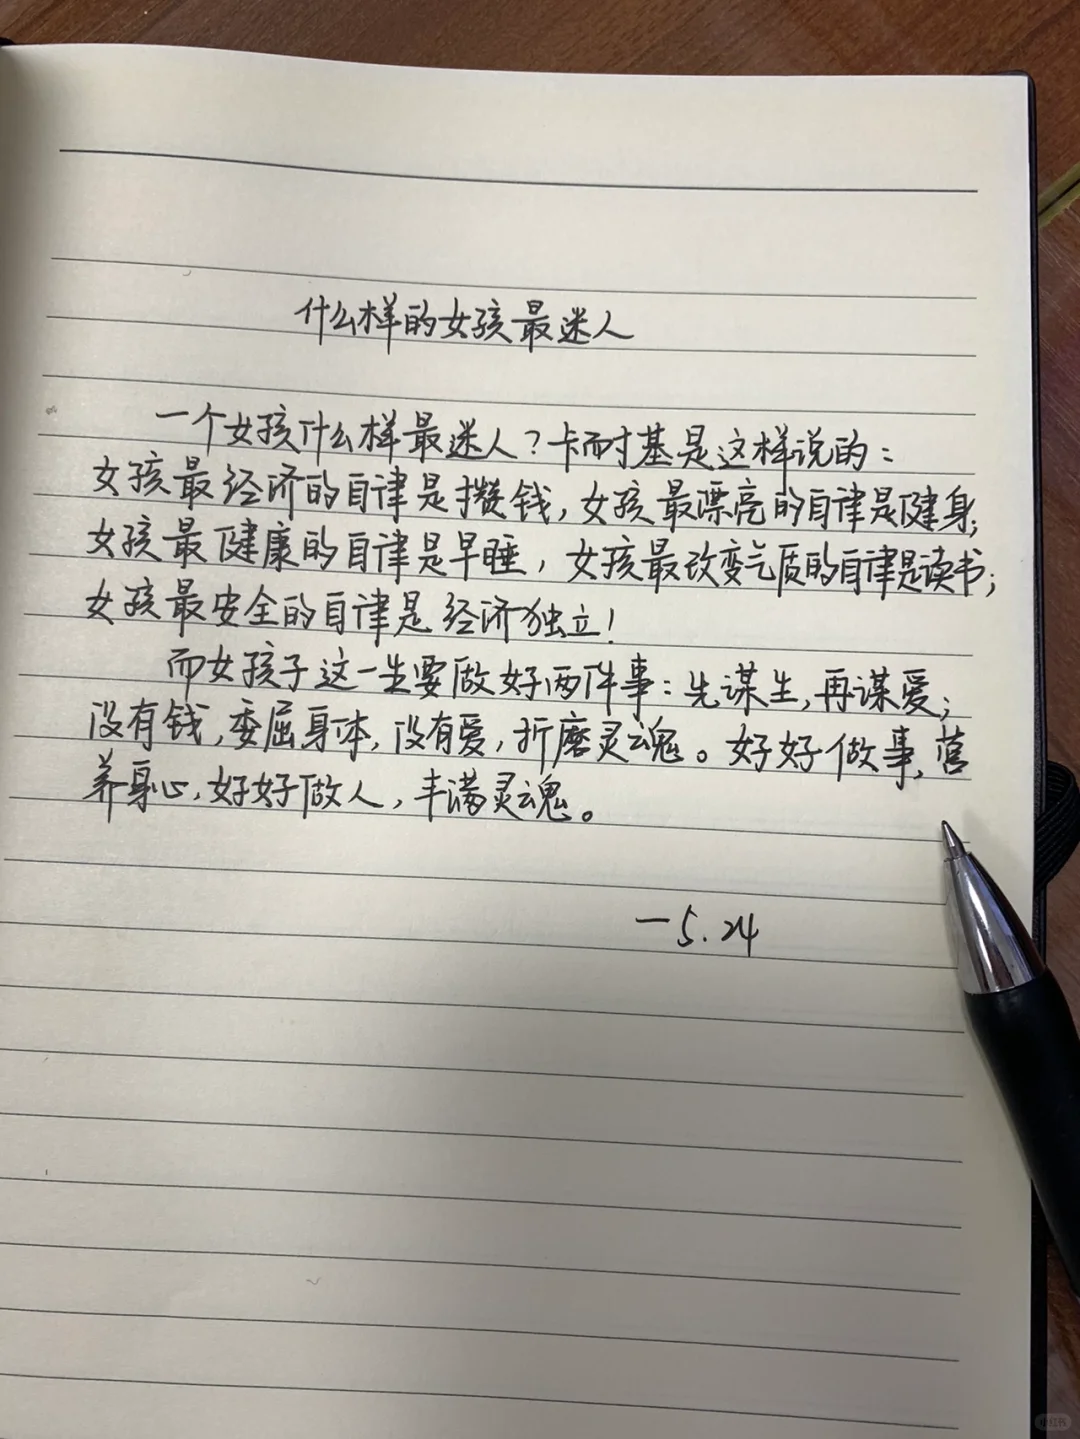 什么样的女孩最迷人
一个女孩什么样最迷人?卡耐基是这样说的:
女孩最经济的自律是攒钱,女孩最漂亮的自律是健身;
女孩最健康的自律是早睡,女孩最改变气质的自律是读书;
女孩最安全的自律是经济独立!
而女孩子这一生要做好两件事:先谋生,再谋爱;
没有钱,委屈身体,没有爱,折磨灵魂。好好做事,营
养身心,好好做人,丰满灵魂。
一5.24
小红书